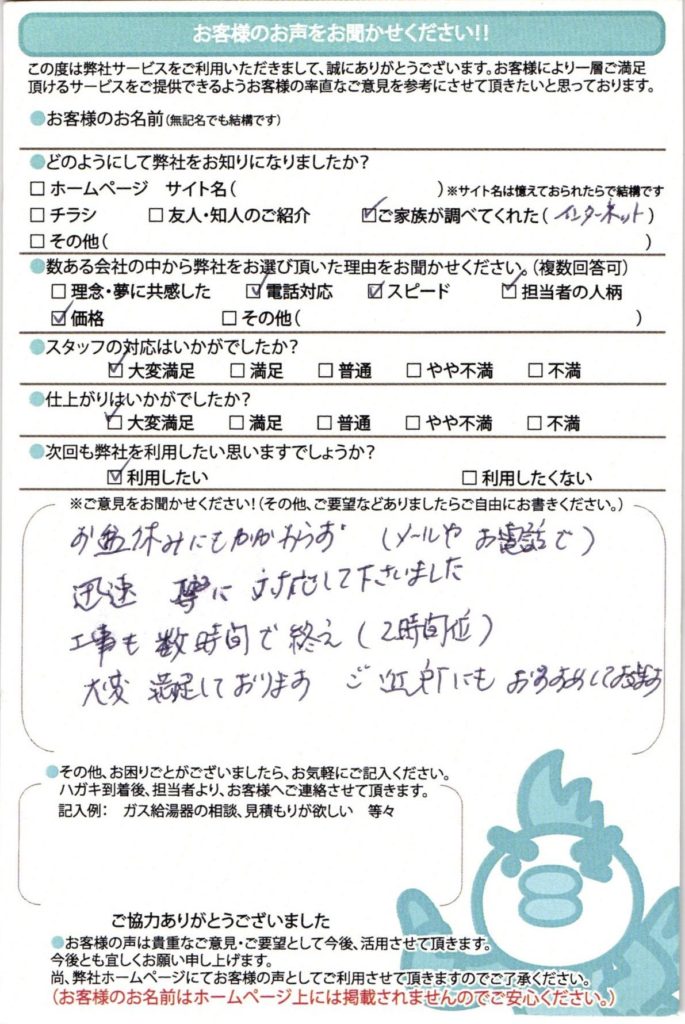 お客様のお声をお聞かせください!!
この度は弊社サービスをご利用いただきまして、誠にありがとうございます。お客様により一層ご満足
頂けるサービスをご提供できるようお客様の率直なご意見を参考にさせて頂きたいと思っております。
●お客様のお名前(無記名でも結構です)
●どのようにして弊社をお知りになりましたか?
□ ホームページ　サイト名(　　　　　　　　　　)※サイト名は憶えておられたらで結構です
□ チラシ　□ 友人・知人のご紹介　☑ご家族が調べてくれた(インターネット)
□ その他(　　　　　　　　　　)
●数ある会社の中から弊社をお選び頂いた理由をお聞かせください。(複数回答可)
□ 理念・夢に共感した　☑ 電話対応　☑ スピード　☑ 担当者の人柄
☑ 価格　□ その他(　　　　　　　　　　)
●スタッフの対応はいかがでしたか?
☑ 大変満足　□ 満足　□ 普通　□ やや不満　□ 不満
●仕上がりはいかがでしたか?
☑ 大変満足　□ 満足　□ 普通　□ やや不満　□ 不満
●次回も弊社を利用したい思いますでしょうか?
☑ 利用したい　□ 利用したくない
※ご意見をお聞かせください!(その他、ご要望などありましたらご自由にお書きください。)
お盆休みにもかかわらず (メールや お電話で)
迅速 に 対応して下さいました
工事も 数時間で 終え (2時間位)
大変 満足しております ご近所にも おすすめして
●その他、お困りごとがございましたら、お気軽にご記入ください。
ハガキ到着後、担当者より、お客様へご連絡させて頂きます。
記入例:　ガス給湯器の相談、見積もりが欲しい　等々
ご協力ありがとうございました
●お客様の声は貴重なご意見・ご要望として今後、活用させて頂きます。
今後とも宜しくお願い申し上げます。
尚、弊社ホームページにてお客様の声としてご利用させて頂きますのでご了承ください。
(お客様のお名前はホームページ上には掲載されませんのでご安心ください。)